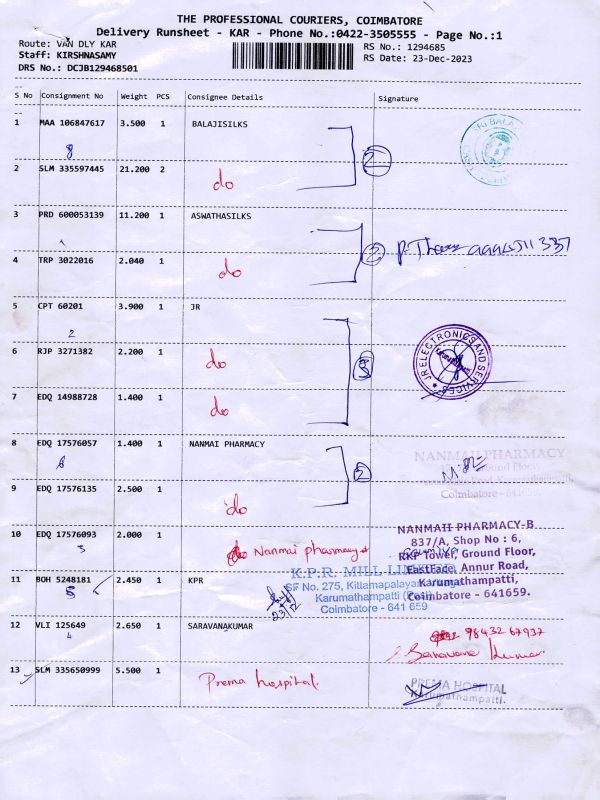 THE PROFESSIONAL COURIERS, COIMBATORE
Delivery Runsheet - KAR - Phone No.:0422-3505555 - Page No.:1
Route: VAN DLY KAR
RS No.: 1294685
Staff: KIRSHNASAMY
RS Date: 23-Dec-2023
DRS No.: DCJB129468501
S No Consignment No Weight PCS Consignee Details Signature
1 MAA 106847617 3.500 1 BALAJISILKS
8
2
2 SLM 335597445 21.200 2 do
3 PRD 600053139 11.200 1 ASWATHASILKS
2
4 TRP 3022016 2.040 1 do
5 CPT 60201 3.900 1 JR
2
3
JR ELECTRONICS AND SERVICES
6 RJP 3271382 2.200 1 do
7 EDQ 14988728 1.400 1 do
8 EDQ 17576057 1.400 1 NANMAI PHARMACY
NANMAII PHARMACY
Ground Floor,
Coimbatore - 641659
9 EDQ 17576135 2.500 1 do
10 EDQ 17576093 2.000 1 do Nanmai pharmacy
3
NANMAII PHARMACY-B
837/A, Shop No : 6,
RKP Tower, Ground Floor,
EastFace, Annur Road,
Karumathampatti,
Coimbatore - 641659.
11 BOH 5248181 2.450 1 KPR
K.P.R. MILL LIMITED
SF No. 275, Kittampalayam
Karumathampatti (Post)
Coimbatore - 641 659
23/12
12 VLI 125649 2.650 1 SARAVANAKUMAR
4
98432 67937
Saravana Kumar
13 SLM 335650999 5.500 1 Prema hospital
PREMA HOSPITAL
Karumathampatti.